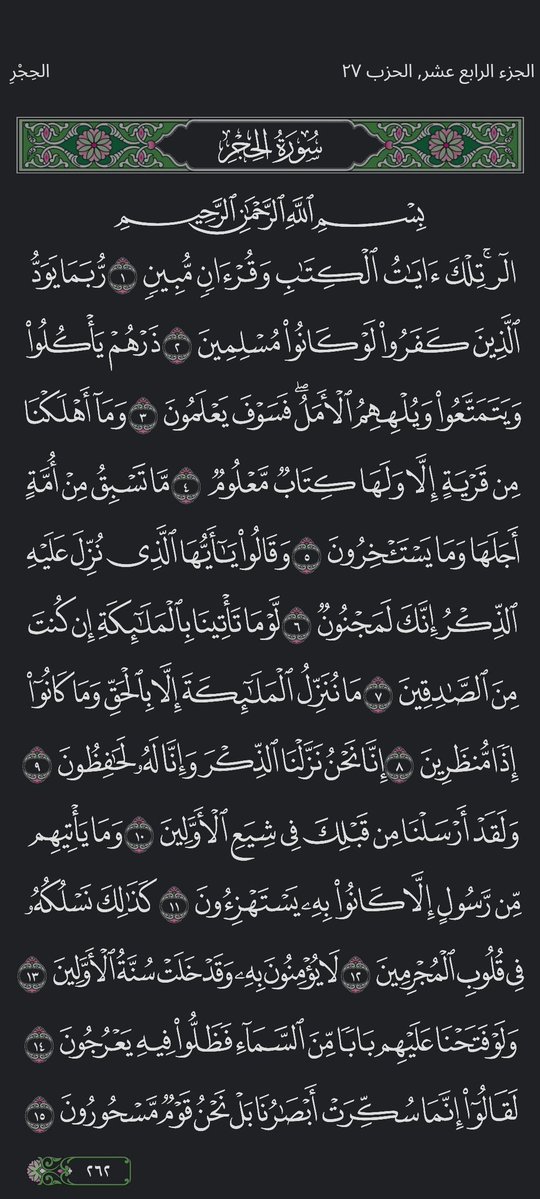 الجزء الرابع عشر, الحزب ٢٧ الحِجْرِ
سُورَةُ الحِجْرِ
بِسْمِ ٱللَّهِ ٱلرَّحْمَٰنِ ٱلرَّحِيمِ
الٓرۚ تِلْكَ ءَايَٰتُ ٱلْكِتَٰبِ وَقُرْءَانٍ مُّبِينٍ ١ رُّبَمَا يَوَدُّ
ٱلَّذِينَ كَفَرُوا۟ لَوْ كَانُوا۟ مُسْلِمِينَ ٢ ذَرْهُمْ يَأْكُلُوا۟
وَيَتَمَتَّعُوا۟ وَيُلْهِهِمُ ٱلْأَمَلُۖ فَسَوْفَ يَعْلَمُونَ ٣ وَمَآ أَهْلَكْنَا
مِن قَرْيَةٍ إِلَّا وَلَهَا كِتَابٌ مَّعْلُومٌ ٤ مَّا تَسْبِقُ مِنْ أُمَّةٍ
أَجَلَهَا وَمَا يَسْتَـْٔخِرُونَ ٥ وَقَالُوا۟ يَٰٓأَيُّهَا ٱلَّذِى نُزِّلَ عَلَيْهِ
ٱلذِّكْرُ إِنَّكَ لَمَجْنُونٌ ٦ لَّوْ مَا تَأْتِينَا بِٱلْمَلَٰٓئِكَةِ إِن كُنتَ
مِنَ ٱلصَّٰدِقِينَ ٧ مَا نُنَزِّلُ ٱلْمَلَٰٓئِكَةَ إِلَّا بِٱلْحَقِّ وَمَا كَانُوٓا۟
إِذًا مُّنظَرِينَ ٨ إِنَّا نَحْنُ نَزَّلْنَا ٱلذِّكْرَ وَإِنَّا لَهُۥ لَحَٰفِظُونَ ٩
وَلَقَدْ أَرْسَلْنَا مِن قَبْلِكَ فِى شِيَعِ ٱلْأَوَّلِينَ ١٠ وَمَا يَأْتِيهِم
مِّن رَّسُولٍ إِلَّا كَانُوا۟ بِهِۦ يَسْتَهْزِءُونَ ١١ كَذَٰلِكَ نَسْلُكُهُۥ
فِى قُلُوبِ ٱلْمُجْرِمِينَ ١٢ لَا يُؤْمِنُونَ بِهِۦ وَقَدْ خَلَتْ سُنَّةُ ٱلْأَوَّلِينَ ١٣
وَلَوْ فَتَحْنَا عَلَيْهِم بَابًا مِّنَ ٱلسَّمَآءِ فَظَلُّوا۟ فِيهِ يَعْرُجُونَ ١٤
لَقَالُوٓا۟ إِنَّمَا سُكِّرَتْ أَبْصَٰرُنَا بَلْ نَحْنُ قَوْمٌ مَّسْحُورُونَ ١٥
٢٦٢